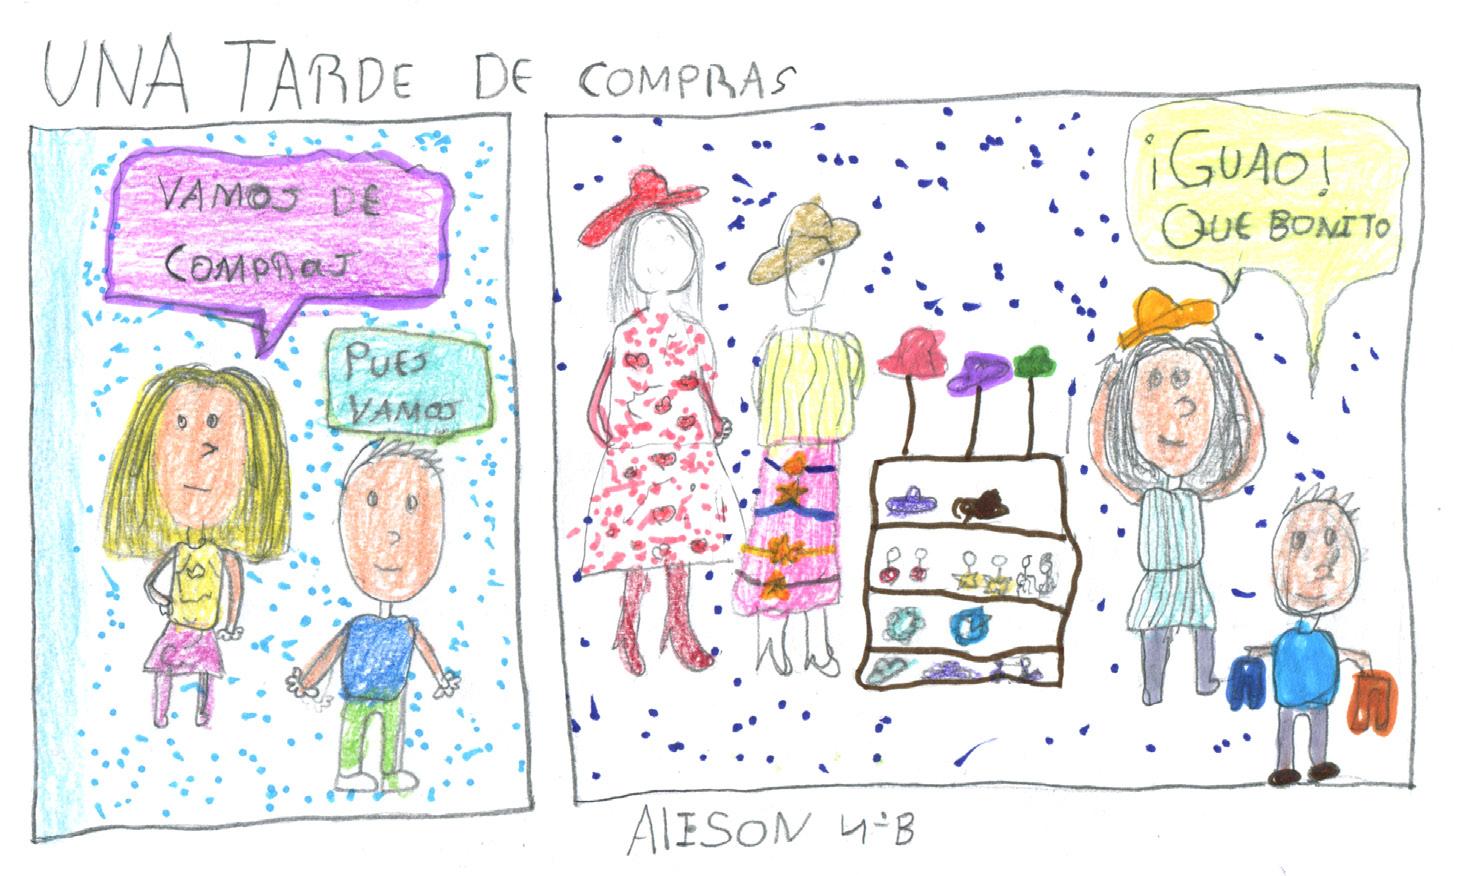 UNA TARDE DE COMPRAS
VAMOS DE
COMPRAS
PUES
VAMOS
¡GUAO!
QUE BONITO
AlISON 4ºB